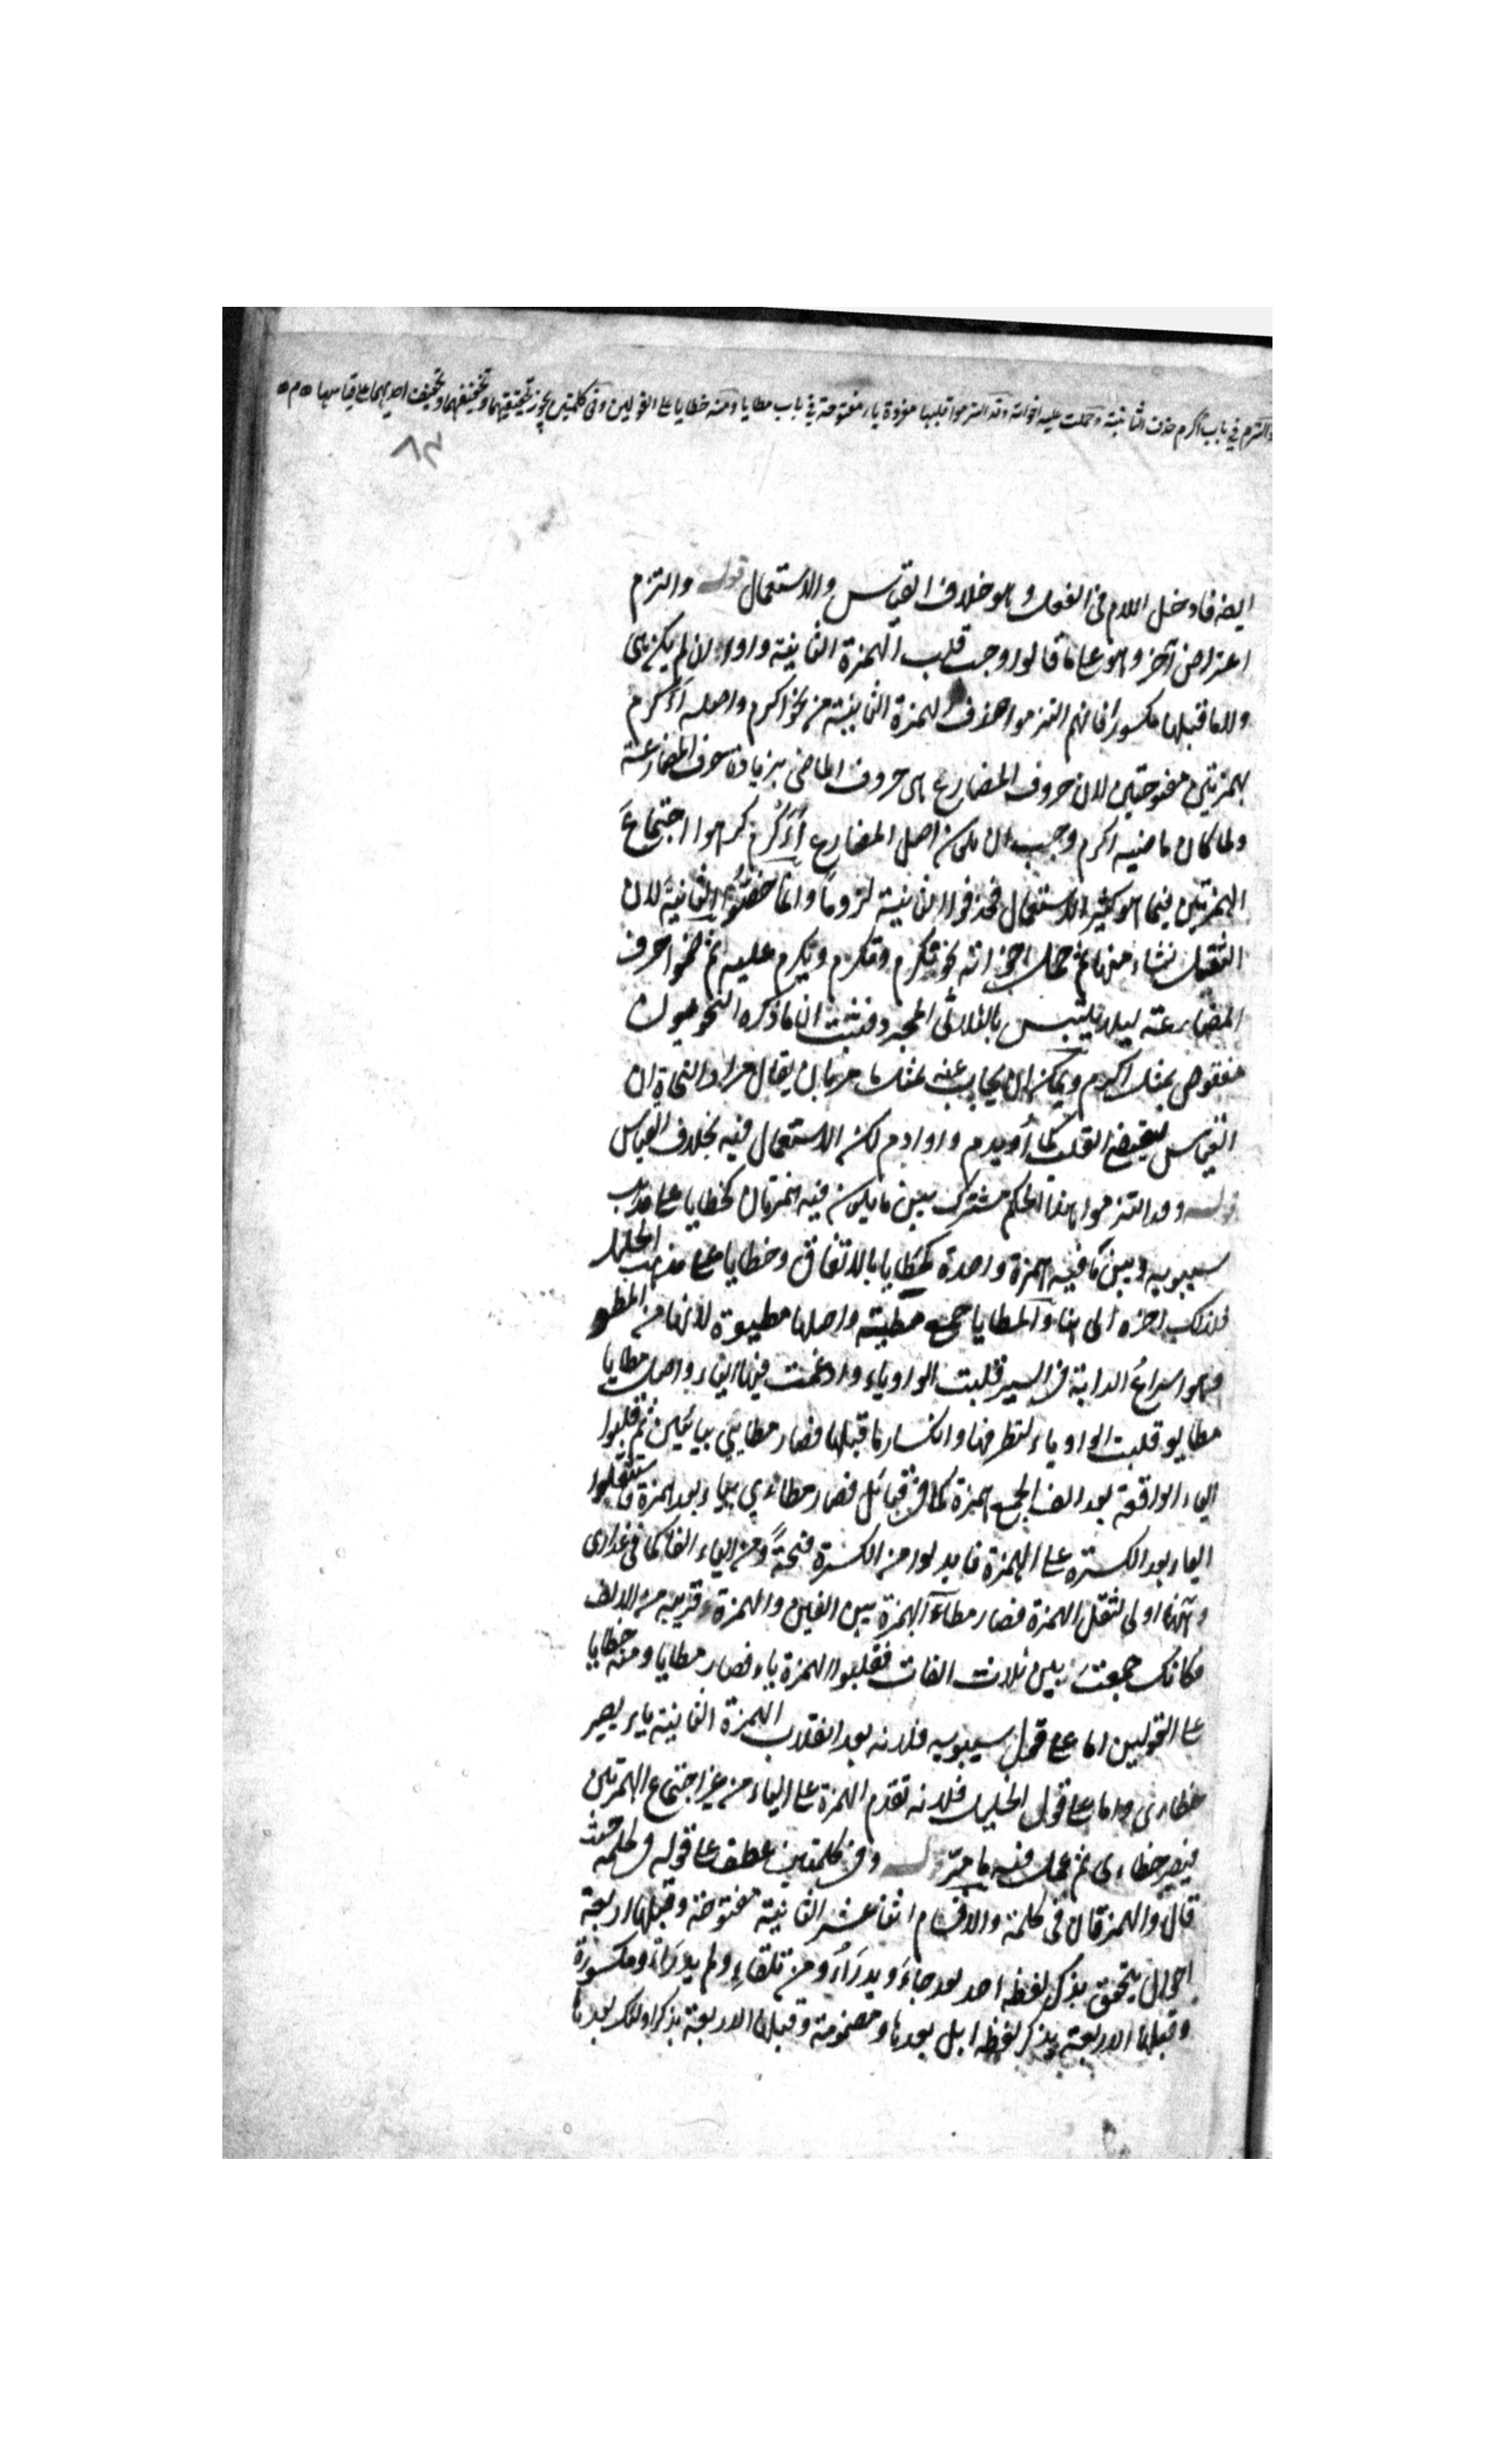 والتزم في باب اكرم حذف الثانية وحملت عليه اخواته وقد التزموا قلبها مفردة ياء مفتوحة في باب مطايا ومنه خطايا على القولين وفي كلمتين يجوز تحقيقهما وتخفيفهما وتخفيف احديهما على قياسها
٨٤
ايضه فادخل اللام في الفعل وهو خلاف القياس والاستعمال قوله والتزم
اعتراض آخر وهو على ما قالوا وجب قلب الهمزة الثانية واوا ان لم يكن هي
ولا ما قبلها مكسورا فانهم التزموا حذف الهمزة الثانية من نحو اكرم واصله أأكرم
بهمزتين مفتوحتين لان حروف المضارع هي حروف الماضي بزيادة حرف المضارعة
ولما كان ماضيه اكرم وجب ان يكون اصل المضارع أُءَكْرِم كرهوا اجتماع
الهمزتين فيما هو كثير الاستعمال فحذفوا الثانية لزوما وانما خصوا الثانية لان
الثقل نشاء منها ثم حمل اخواته نحو نكرم وتكرم ويكرم عليه ثم ضموا حرف
المضارعة ليلا يلتبس بالثلاثي المجرد فثبت ان ما ذكره النحويون
منقوض بمثل اكرم ويمكن ان يجاب عنه بمثل ما مر بان يقال مراد النحاة ان
القياس يقتضي القلب كما أويدم واوادم لكن الاستعمال فيه بخلاف القياس
قوله وقد التزموا هذا الحكم مشترك بين ما يكون فيه همزتان كخطايا على مذهب
سيبويه وبين ما فيه همزة واحدة كمطايا بالاتفاق وخطايا على مذهب الخليل
فلذلك اخره الى هنا والمطايا جمع مطية واصلها مطيوة لانها من المطو
وهو اسراع الدابة في السير فقلبت الواو ياء وادغمت فيها الياء واصل مطايا
مطايو قلبت الواو ياء لتطرفها وانكسار ما قبلها فصار مطايي بيائين ثم قلبوا
الياء الواقعة بعد الف الجمع همزة كما في قبائل فصار مطاءي بياء بعد همزة فاستثقلوا
الياء بعد الكسرة على الهمزة فابدلوا من الكسرة فتحة ومن الياء الفا كما في عذارى
وههنا اولى لثقل الهمزة فصار مطاءآ الهمزة بين الفين والهمزة قريبه من الالف
فكانك جمعت بين ثلاث الفات فقلبوا الهمزة ياء فصار مطايا ومنه خطايا
على القولين اما على قول سيبويه فلانه بعد انقلاب الهمزة الثانية ياء يصير
خطاءي واما على قول الخليل فلانه تقدم الهمزة على الياء من غير اجتماع الهمزتين
فيصير خطاءي ثم عمل فيه ما مر قوله وفي كلمتين عطف على قوله في كلمة حيث
قال والهمزتان في كلمة والاقسام اثنا عشر الثانية مفتوحة وقبلها اربعة
احوال يتحقق بذكر لفظه احد بعد جاءَ ويدرَأُ ومن تلقاءِ ولم يدرَأْ ومكسورة
وقبلها الاربعة بذكر لفظه ابل بعدها ومضمومة وقبلها الاربعة بذكر اولئك بعدها